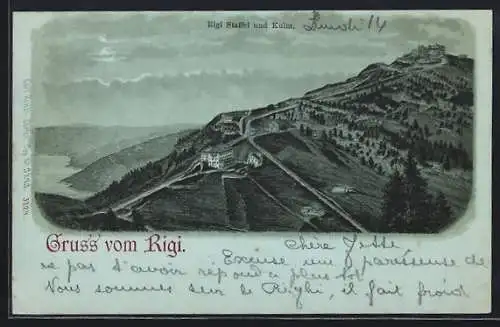 Rigi Staffel und Kulm.
Lundi 14
Gruss vom Rigi.
Chère Jette
Excuse une paresseuse de
ne pas t'avoir répondu plus tôt
Nous sommes sur le Righi, il fait froid
3128